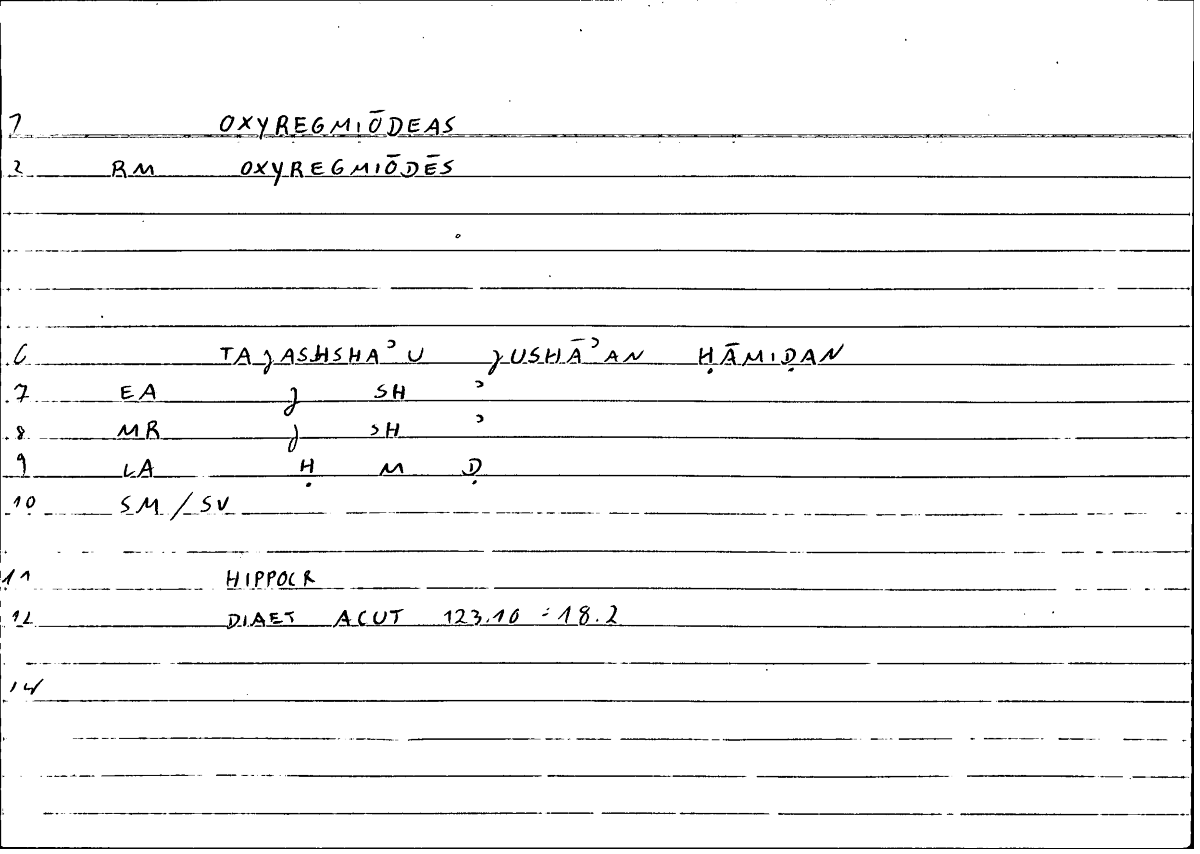 1 OXYREGMIŌDEAS
2 RM OXYREGMIŌDĒS
6 TAJASHSHAʾU JUSHĀʾAN ḤĀMIḌAN
7 EA J SH ʾ
8 MR J SH ʾ
9 LA Ḥ M Ḍ
10 SM/SV
11 HIPPOCR
12 DIAET ACUT 123.10 = 18.2
14